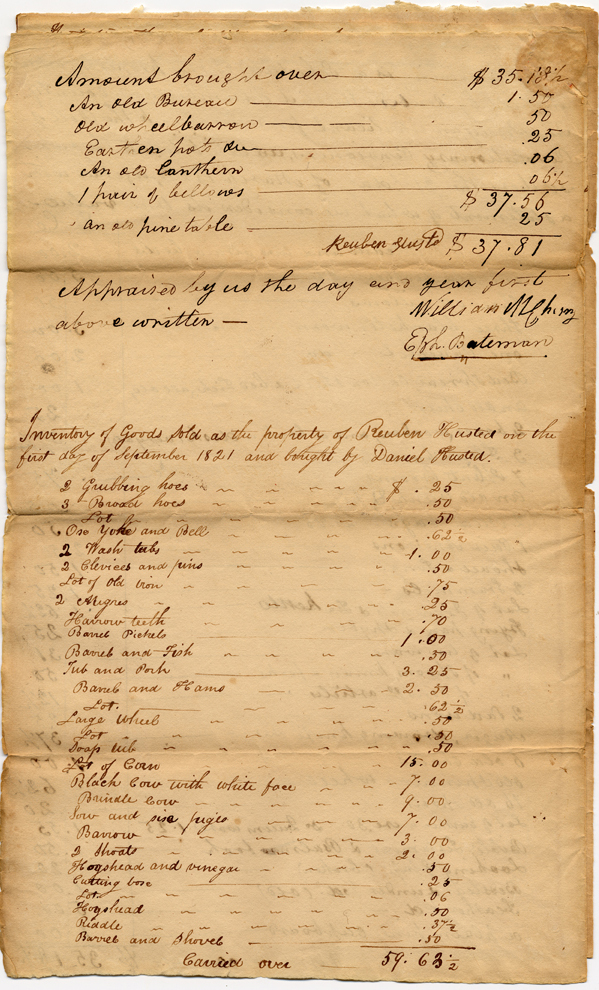 Amount brought over $ 35.18 1/2
An old Bureau 1.50
Old wheelbarrow 50
Earthen pots &c .25
An old Lanthern .06
1 pair of bellows 06 1/2
$ 37.56
an old pine table 25
Reuben Husted $ 37.81
Appraised by us the day and year first
above written —
William
Eph. Bateman
Inventory of Goods sold as the property of Reuben Husted on the
first day of September 1821 and bought by Daniel Husted.
2 Grubbing hoes $ .25
3 Broad hoes .50
Lot .50
Oxe Yoke and Bell .62 1/2
2 Wash tubs 1.00
2 Clevices and pins .50
Lot of Old iron .75
2 .25
Harrow teeth .70
Barrel Pickels 1.00
Barrel and Fish .50
Tub and Pork 3.25
Barrel and Hams 2.50
Lot. .62 1/2
Large Wheel .50
Lot .50
Soap tub .50
Lot of Corn 15.00
Black Cow with white face 7.00
Brindle Cow 9.00
Sow and six piges 7.00
Barrow 3.00
3 Shoats 2.00
Hogshead and vinegar .50
Cutting boxe .25
Lot .06
Hogshead .50
Riddle .37 1/2
Barrel and Shovel .50
Carried over 59.63 1/2